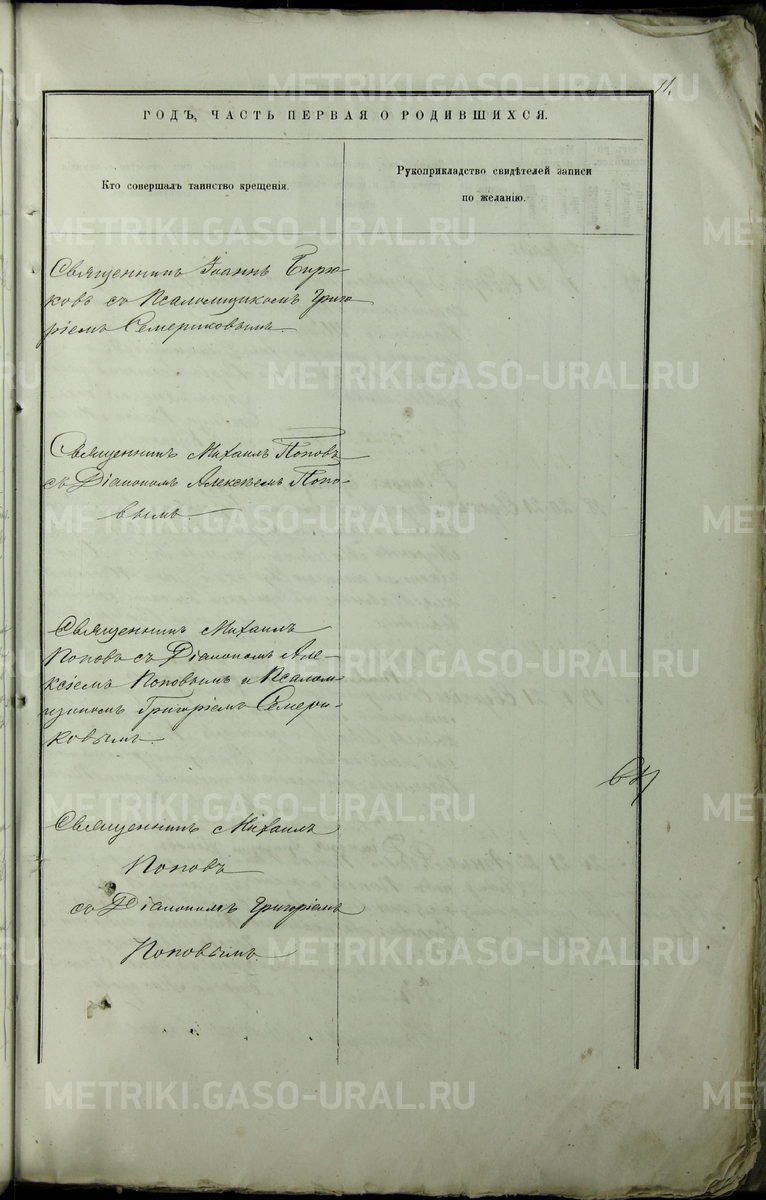 11.
ГОДЪ, ЧАСТЬ ПЕРВАЯ О РОДИВШИХСЯ.
Кто совершалъ таинство крещенія.
Рукоприкладство свидѣтелей записи
по желанію.
Священникъ Іоаннъ Бирю-
ковъ съ Псаломщикомъ Григо
ріемъ Семериковымъ.
Священникъ Михаилъ Поповъ
съ Діакономъ Алексѣемъ Попо-
вымъ.
Священникъ Михаилъ
Поповъ съ Діакономъ Але-
ксіемъ Поповымъ и Псалом-
щикомъ Григоріемъ Семери-
ковымъ.
Священникъ Михаилъ
Поповъ
съ Діакономъ Григоріемъ
Поповымъ.
METRIKI.GASO-URAL.RU